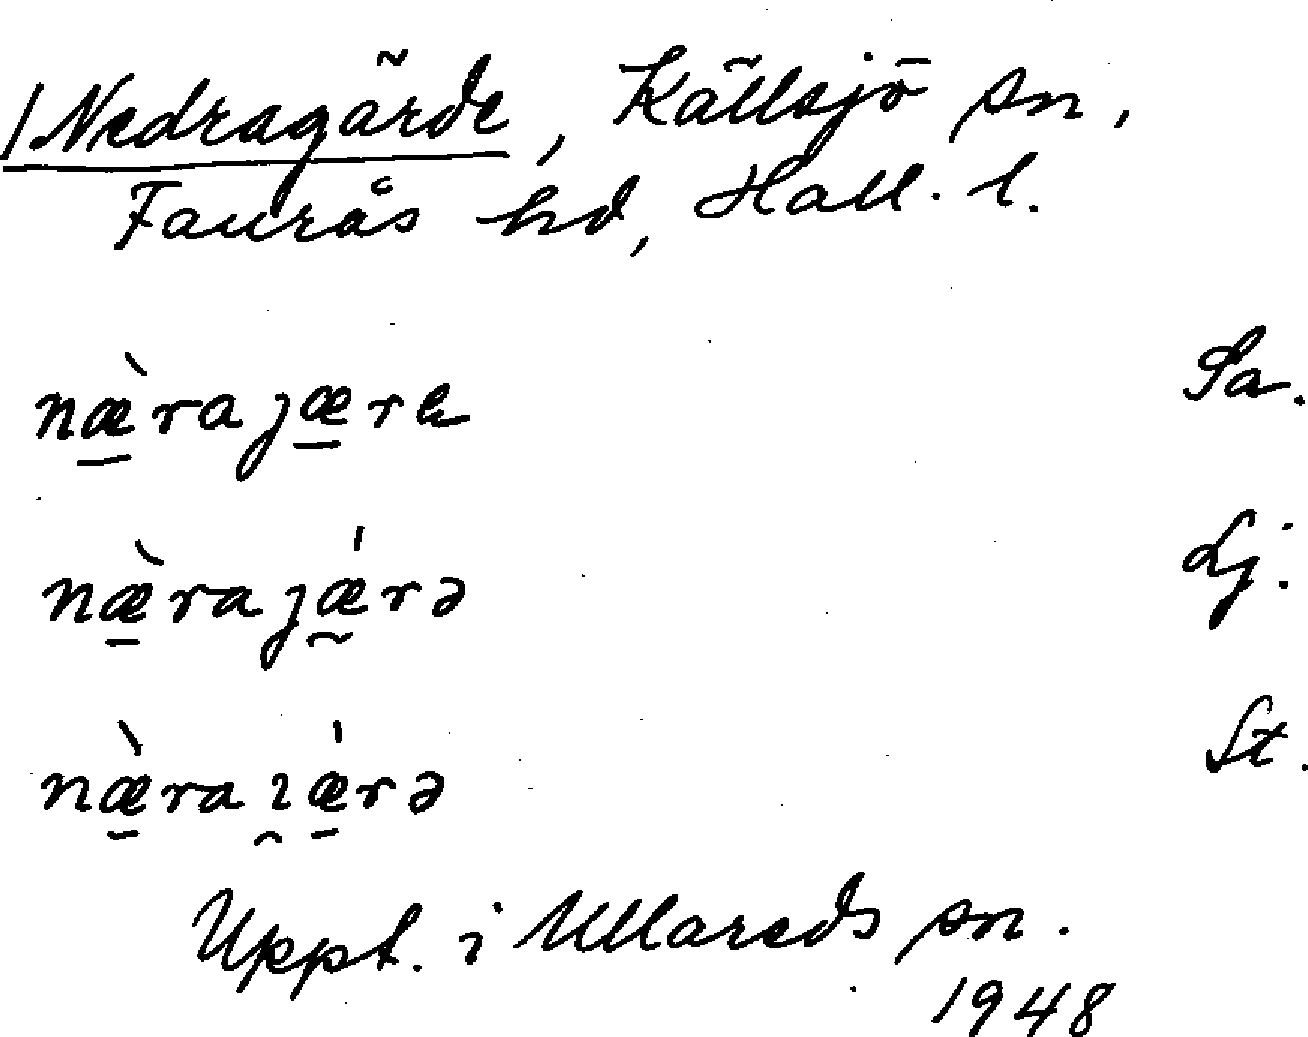 /Nedragärde, Källsjö sn,
Faurås hd, Hall. l.
næ̱̀rajæ̱re Sa.
næ̱̀rajǽ̰rə Lj.
næ̱̀raı̯ǽ̱rə St.
Uppt. i Ullareds sn.
1948